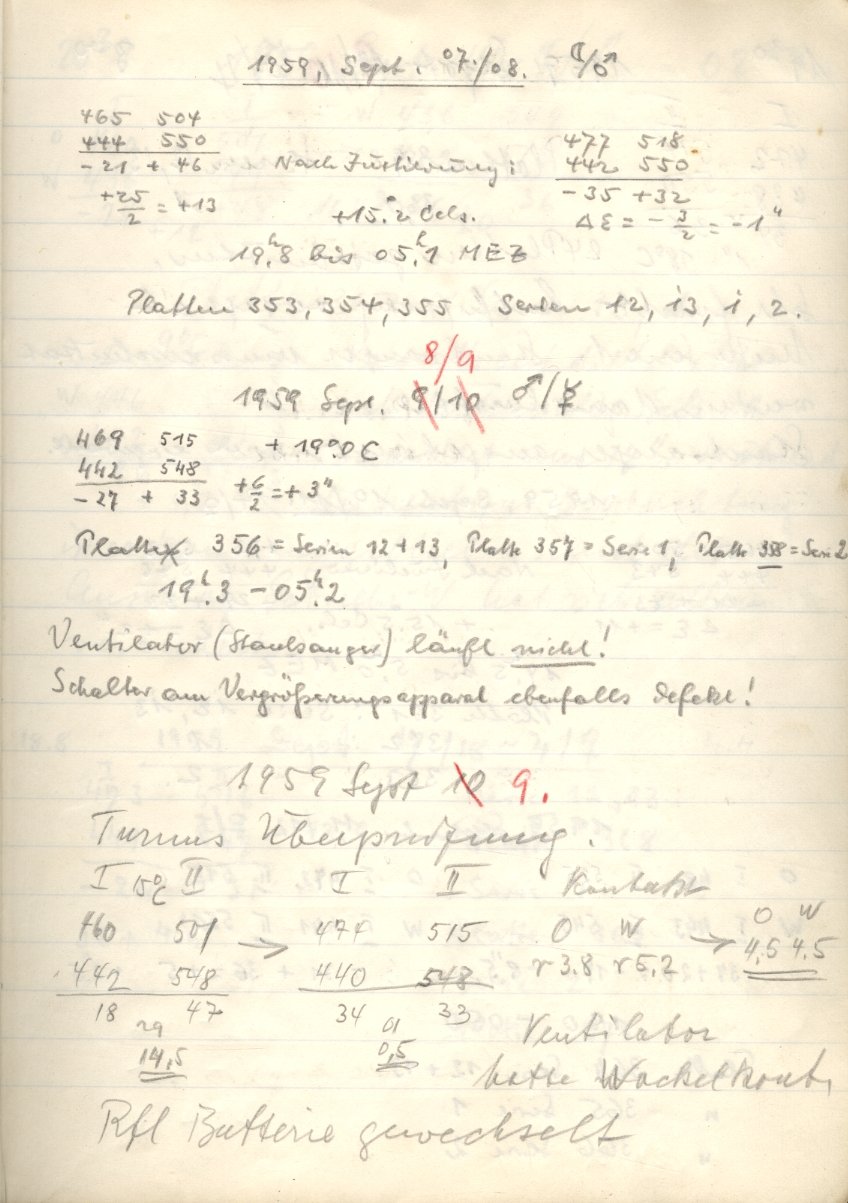 1959, Sept. 07./08. ☾/♂
465 504
444 550
- 21 + 46
+25/2 = +13
Nach Justierung:
477 518
442 550
- 35 + 32
Δε = - 3/2 = -1"
+15.°2 Cels.
19.ʰ8 bis 05.ʰ1 MEZ
Platten 353, 354, 355 Serien 12, 13, 1, 2.
8/9
1959 Sept. 9/10 ♂/☿
469 515 + 19°.0 C
442 548
- 27 + 33 +6/2 = + 3"
Platte 356 = Serien 12+13, Platte 357 = Serie 1, Platte 358 = Serie 2
19ʰ.3 - 05ʰ.2
Ventilator (Staubsauger) läuft nicht!
Schalter am Vergrößerungsapparat ebenfalls defekt!
1959 Sept 10 9.
Turnus Überprüfung.
I 15°C II I II Kontakt
460 501 → 474 515 O W → O W
442 548 440 548 r 3.8 r 5.2 4,5 4.5
18 47 34 33
29 01
14,5 0,5
Ventilator
hatte Wackelkont.
Rfl Batterie gewechselt